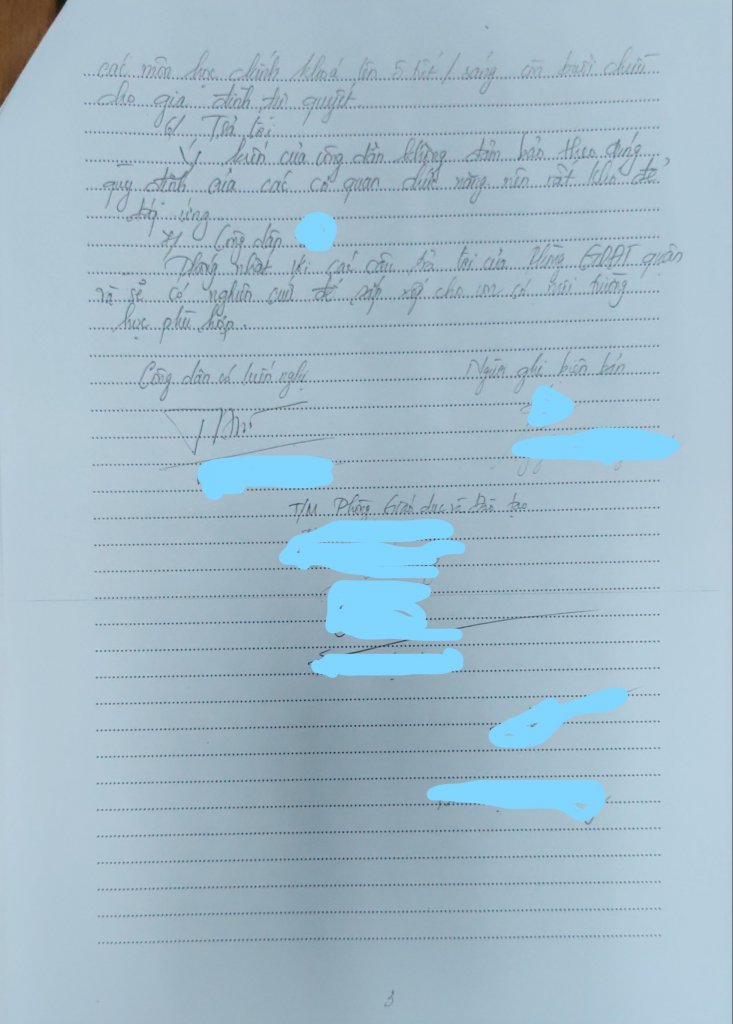 các môn học chính khoá lên 5 tiết / sáng còn buổi chiều
cho gia đình tự quyết.
6/ Trả lời
Ý kiến của công dân không đảm bảo theo đúng
quy định của các cơ quan chức năng nên rất khó để
đáp ứng
*/ Công dân
Thống nhất với các câu trả lời của Phòng GDĐT quận
và sẽ có nghiên cứu để sắp xếp cho con có môi trường
học phù hợp.
Công dân có kiến nghị
Người ghi biên bản
T/M Phòng Giáo dục và Đào tạo
3